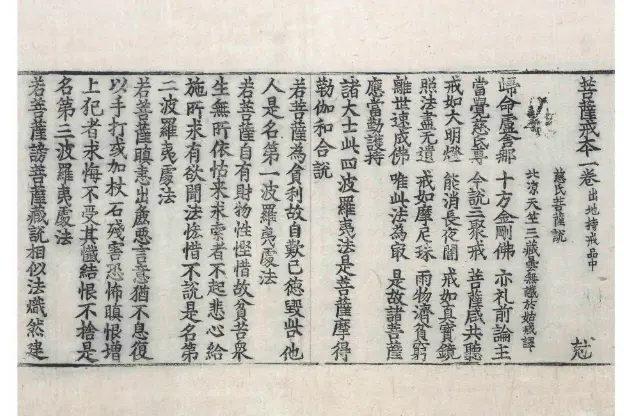 菩薩戒本一卷 出地持戒品中
尅
慈氏菩薩說
北凉天竺三藏曇無讖於姑臧譯
歸命盧舍那 十方金剛佛 亦礼前論主
當覺慈氏尊 今說三聚戒 菩薩咸共聽
戒如大明燈 能消長夜闇 戒如真實鏡
照法盡無遺 戒如摩尼珠 雨物濟貧窮
離世速成佛 唯此法為冣 是故諸菩薩
應當勤護持
諸大士此四波羅夷法是菩薩摩得
勒伽和合說
若菩薩為貪利故自歎己德毀呰他
人是名第一波羅夷處法
若菩薩自有財物性慳惜故貧苦衆
生無所依怙来求索者不起悲心給
施所求有欲聞法悋惜不說是名第
二波羅夷處法
若菩薩瞋恚出麁惡言意猶不息復
以手打或加杖石殘害恐怖瞋恨增
上犯者求悔不受其懺結恨不捨是
名第三波羅夷處法
若菩薩謗菩薩藏說相似法熾然建